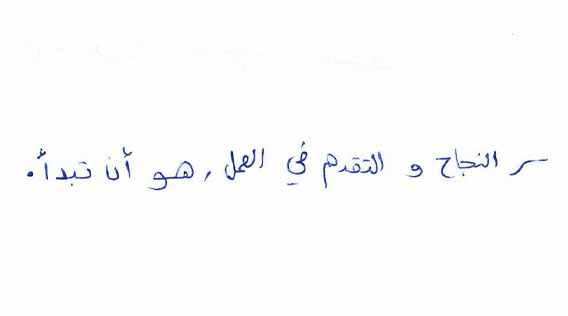 سر النجاح و التقدم في العمل, هو أن تبدأ.